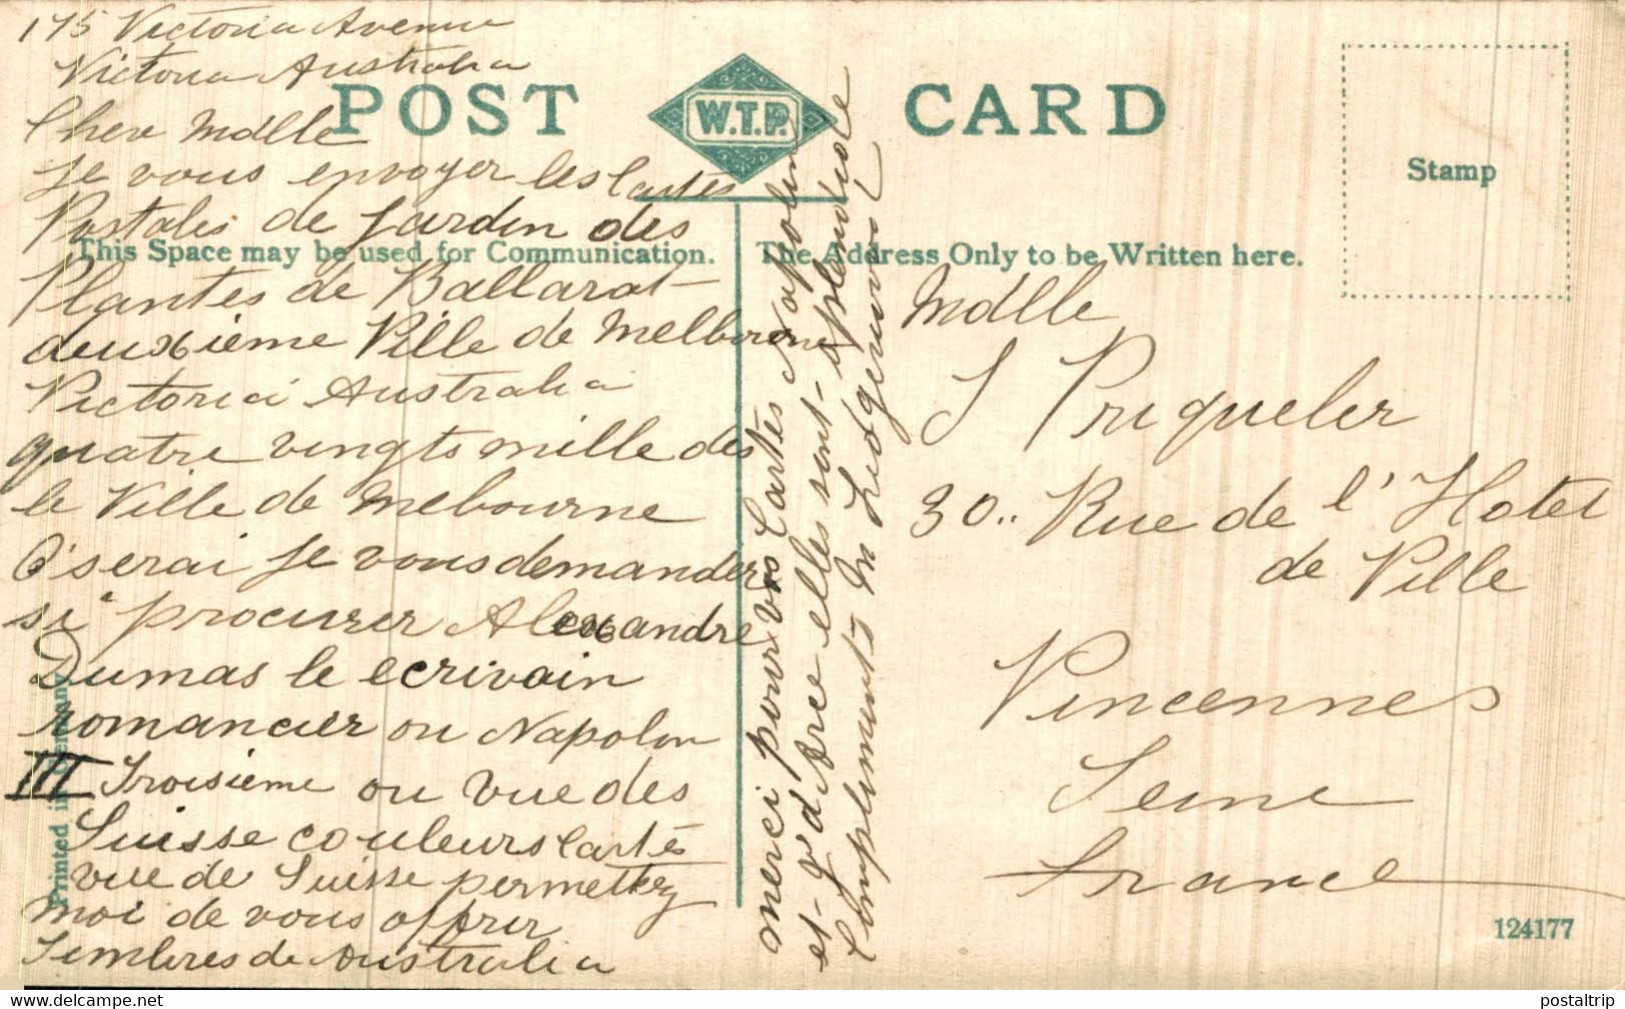 175 Victoria Avenue
Victoria Australia
POST W.T.P. CARD
Stamp
Cher Mdlle
Je vous envoyer les Cartes
Postales de Jardin des
This Space may be used for Communication.
The Address Only to be Written here.
Plantes de Ballarat
deuxième Ville de Melbourne
Victoria Australia
quatre vingts mille des
le Ville de Mebourne
O'serai Je vous demander
si procurer Alexandre
Dumas le ecrivain
romancier ou Napolon
III Troisième ou vue des
Suisse couleurs Cartes
vue de Suisse permettez
moi de vous offrir
Timbres de Australia
Printed in Germany
merci pour vos Cartes Napolin
et J d'Arce elles sont splendide
Compliments M Ludgerinot
Mdlle
J Priqueler
30.. Rue de l'Hotel
de Ville
Vincennes
Seine
France
124177
postaltrip.com
postaltrip